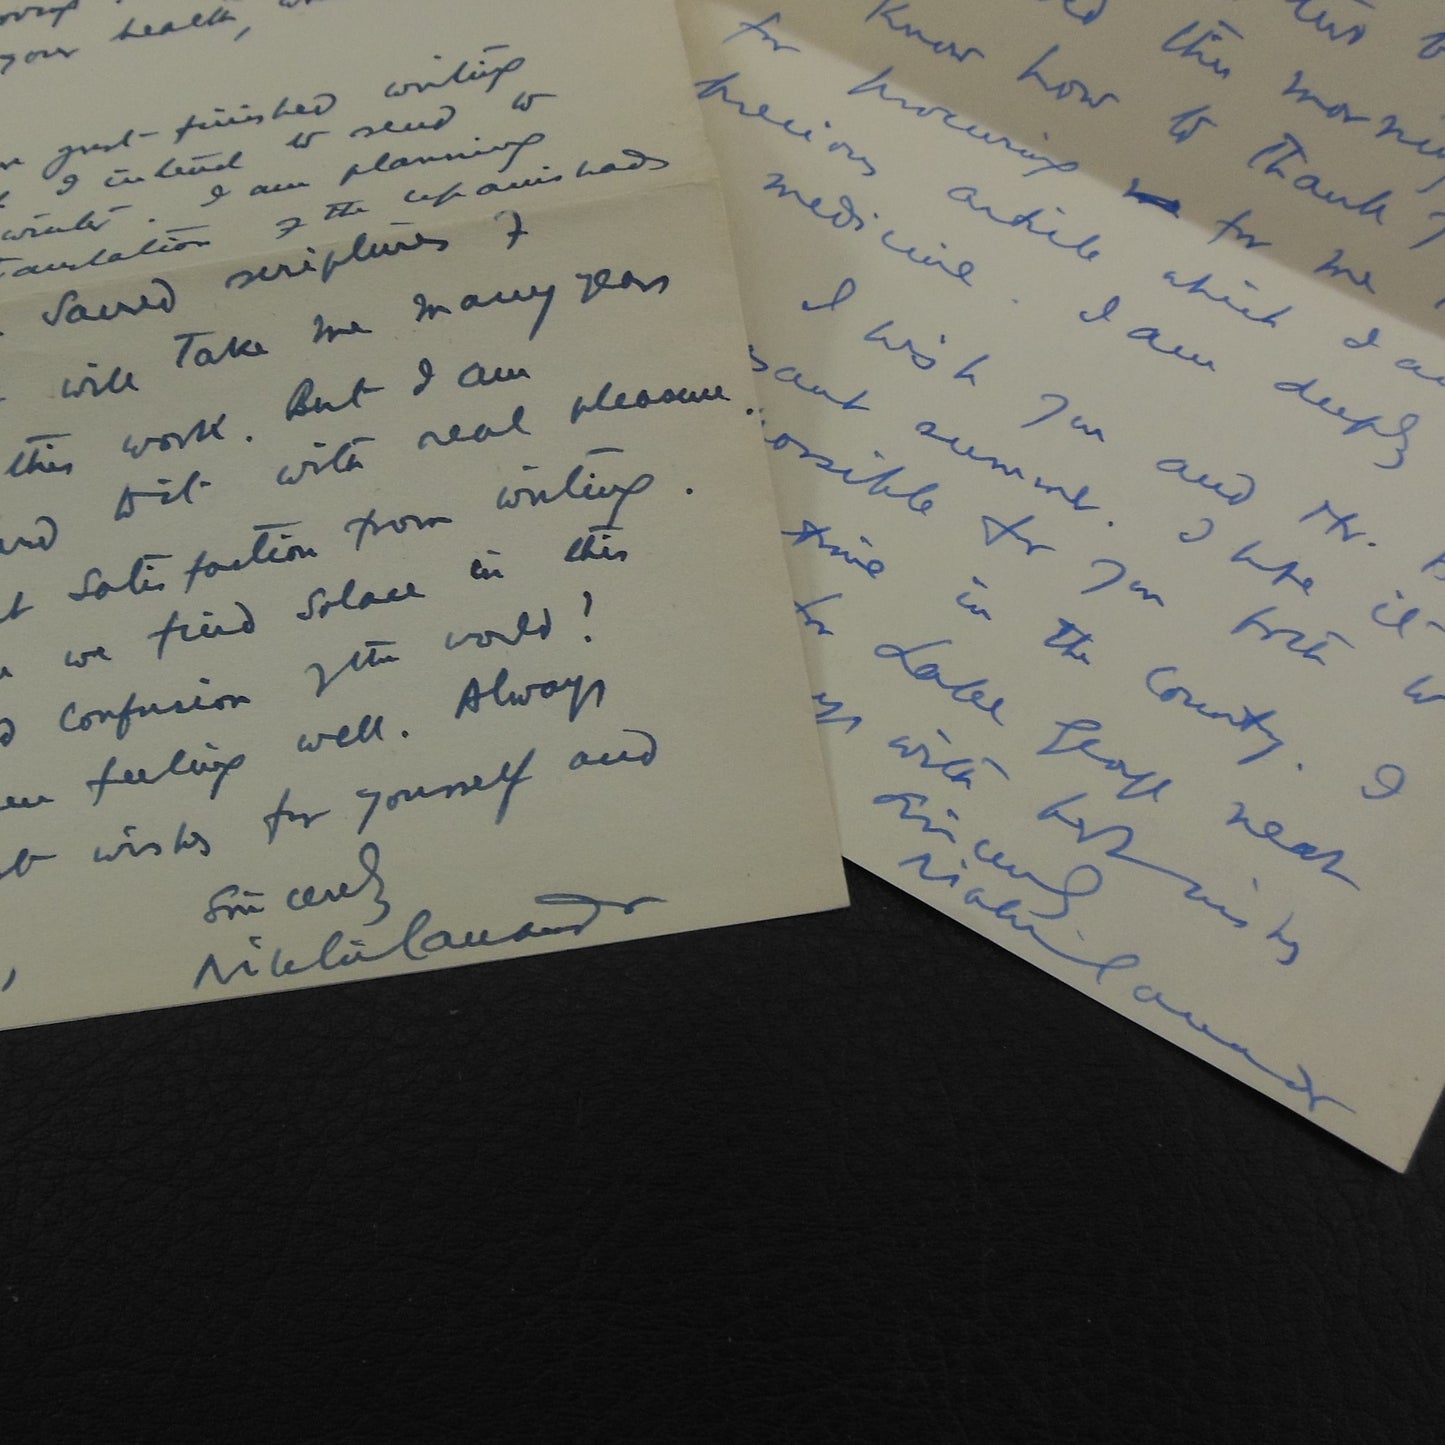 your health,
just finished writing
I intend to send to
winter. I am planning
translation of the Upanishads
Sacred scriptures of
will take me many years
this work. But I am
it with real pleasure.
satisfaction from writing.
we find solace in this
confusion of the world!
feeling well. Always
wishes for yourself and
Sincerely
Nikhilananda
this morning
know how to thank
for procuring for me
precious article which I am
medicine. I am deeply
I wish you and Mr.
summer. I hope it
possible for you both
time in the country. I
for Lake George next
with best wishes
Sincerely
Nikhilananda